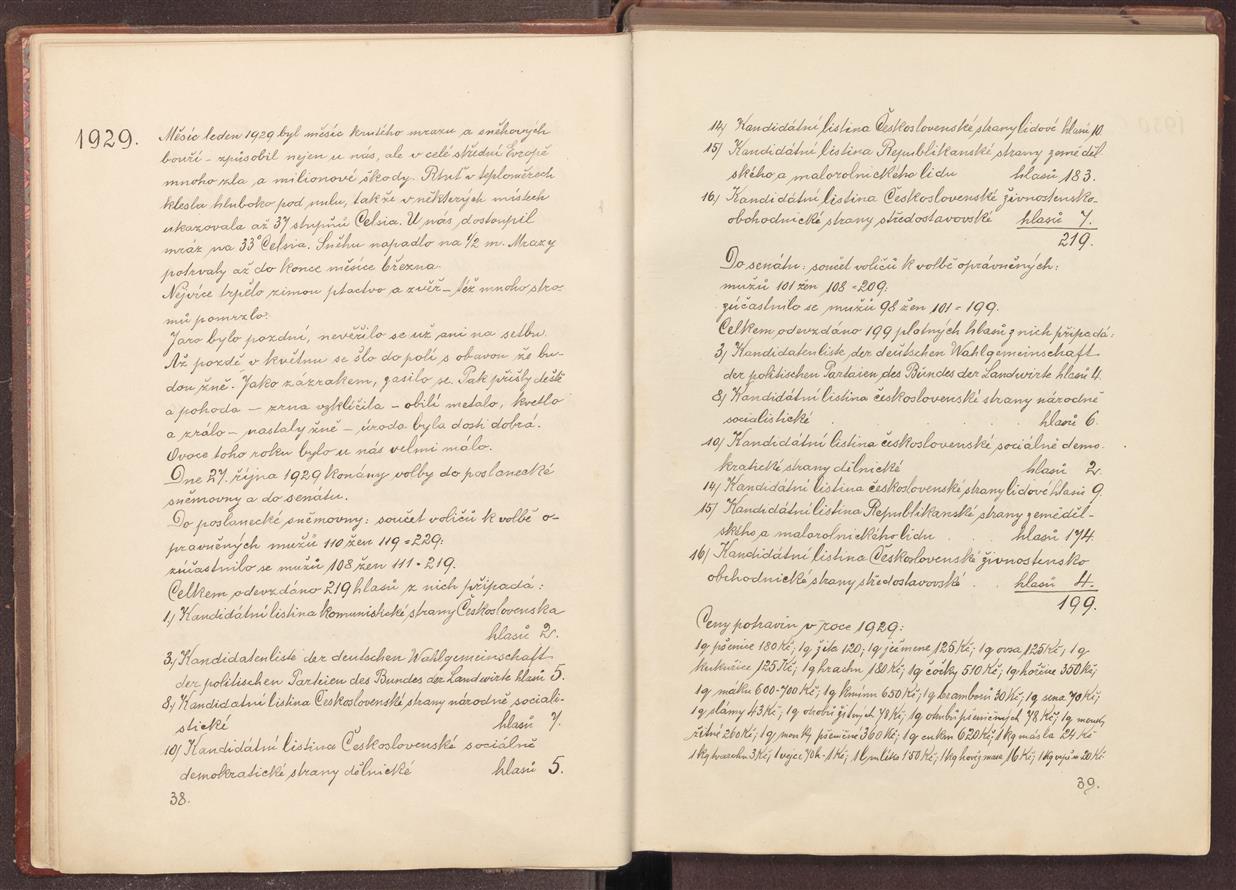 1929.
Měsíc leden 1929 byl měsíc krutého mrazu a sněhových
bouří – způsobil nejen u nás, ale v celé střední Evropě
mnoho zla a milionové škody. Rtuť v teploměrech
klesla hluboko pod nulu, takže v některých místech
ukazovala až 37 stupňů Celsia. U nás dostoupil
mráz na 33° Celsia. Sněhu napadlo na ½ m. Mrazy
potrvaly až do konce měsíce března.
Nejvíce trpělo zimou ptactvo a zvěř – též mnoho stro-
mů pomrzlo.
Jaro bylo pozdní, nevěřilo se už ani na setbu.
Až pozdě v květnu se šlo do polí s obavou že bu-
dou žně. Jako zázrakem, zasilo se. Pak přišly deště
a pohoda – zrna vzklíčila – obilí metalo, kvetlo
a zrálo – nastaly žně – úroda byla dosti dobrá.
Ovoce toho roku bylo u nás velmi málo.
Dne 27. října 1929 konány volby do poslanecké
sněmovny a do senátu.
Do poslanecké sněmovny: součet voličů k volbě o-
pravněných mužů 110 žen 119 = 229:
zúčastnilo se mužů 108 žen 111 = 219.
Celkem odevzdáno 219 hlasů z nich připadá:
1.) Kandidátní listina komunistické strany Československa
hlasů 2.
3.) Kandidatenliste der deutschen Wahlgemeinschaft
der politischen Parteien des Bundes der Landwirte hlasů 5.
8.) Kandidátní listina Československé strany národně sociali-
stické hlasů 7.
10) Kandidátní listina Československé sociálně
demokratické strany dělnické hlasů 5.
38.
14) Kandidátní listina Československé strany lidové hlasů 10.
15) Kandidátní listina Republikanské strany zeměděl-
ského a malorolnického lidu hlasů 183.
16) Kandidátní listina Československé živnostensko-
obchodnické strany středostavovské hlasů 7.
219.
Do senátu: součet voličů k volbě oprávněných:
mužů 101 žen 108 = 209:
zúčastnilo se mužů 98 žen 101 = 199.
Celkem odevzdáno 199 platných hlasů z nich připadá:
3) Kandidatenliste der deutschen Wahlgemeinschaft
der politischen Partaien des Bundes der Landwirte hlasů 4.
8) Kandidátní listina československé strany národně
socialistické . . . hlasů 6.
10) Kandidátní listina československé sociálně demo-
kratické strany dělnické hlasů 2.
14) Kandidátní listina československé strany lidové hlasů 9.
15) Kandidátní listina Republikánské strany zeměděl-
ského a malorolnického lidu . . hlasů 174.
16) Kandidátní listina Československé živnostensko
obchodnické strany středostavovské . hlasů 4.
199.
Ceny potravin v roce 1929:
1q pšenice 180 Kč, 1q žita 120; 1q ječmene 125 Kč, 1q ovsa 125 Kč, 1q
kukuřice 125 Kč, 1q hrachu 180 Kč, 1q čočky 510 Kč, 1q hořčice 350 Kč,
1q máku 600-700 Kč, 1q kmínu 650 Kč, 1q bramborů 30 Kč, 1q sena 70 Kč,
1q slámy 43 Kč, 1q otrubů žitných 70 Kč, 1q otrubů pšeničných 78 Kč, 1q mouky
žitné 260 Kč, 1q mouky pšeničné 360 Kč, 1q cukru 620 Kč, 1 kg másla 24 Kč
1 kg tvarohu 3 Kč, 1 vejce 70 h - 1 Kč, 1 l mléka 1·50 Kč, 1 kg hověz masa 16 Kč, 1 kg vepřov 20 Kč
39.